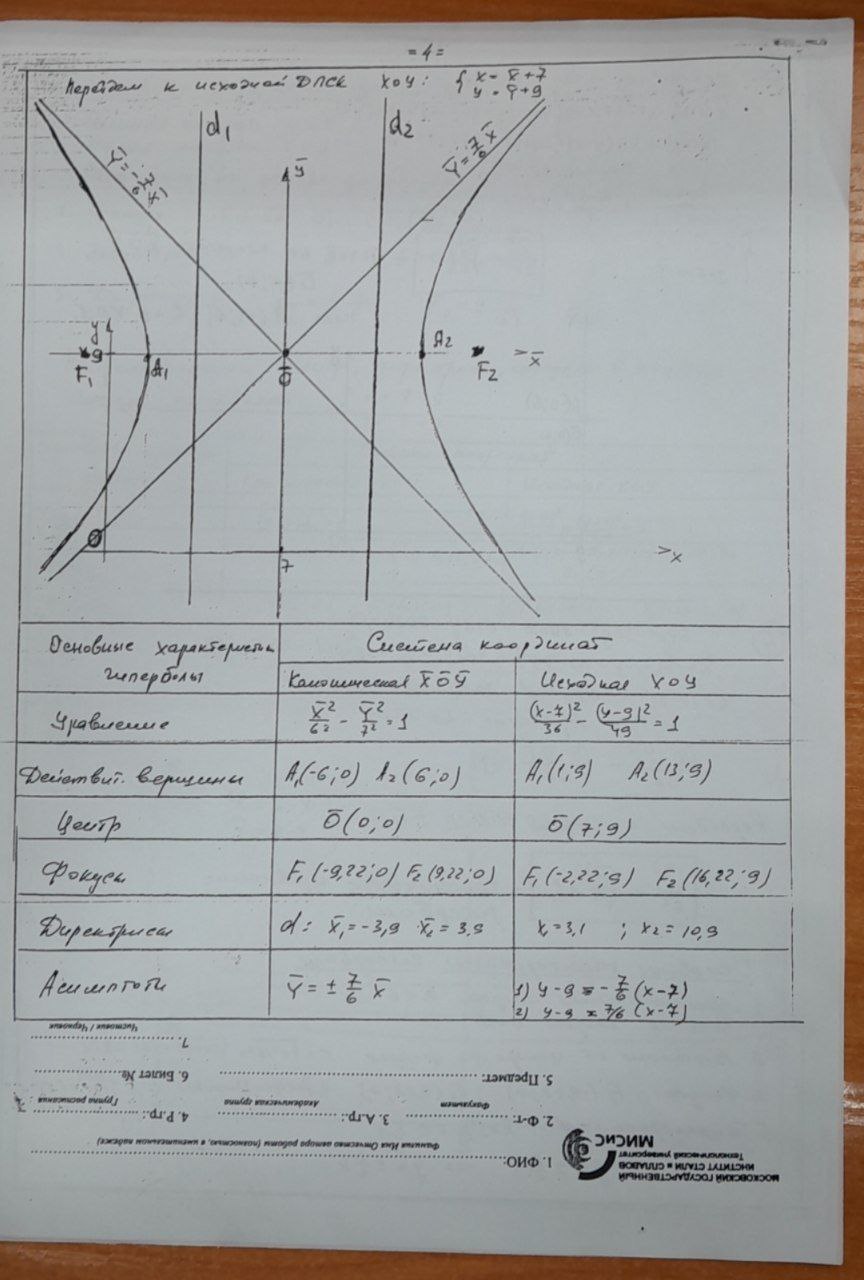 = 4 =
Перейдем к исходной ДПСК XOY: { x = x̄ + 7
y = ȳ + 9
d₁ d₂
Ȳ = -7/6 X̄
Ȳ = 7/6 X̄
ȳ
y
9
F₁ A₁ Ō A₂ F₂ x̄
O
7
x
Основные характеристики гиперболы
Система координат
Каноническая X̄ŌȲ
Исходная XOY
Уравнение X̄²/6² - Ȳ²/7² = 1 (x-7)²/36 - (y-9)²/49 = 1
Действит. вершины A₁(-6;0) A₂(6;0) A₁(1;9) A₂(13;9)
Центр Ō(0;0) Ō(7;9)
Фокусы F₁(-9,22;0) F₂(9,22;0) F₁(-2,22;9) F₂(16,22;9)
Директрисы d: X̄₁ = -3,9 X̄₂ = 3,9 x₁ = 3,1 ; x₂ = 10,9
Асимптоты Ȳ = ± 7/6 X̄ 1) y-9 = -7/6 (x-7)
2) y-9 = 7/6 (x-7)
МОСКОВСКИЙ ГОСУДАРСТВЕННЫЙ
ИНСТИТУТ СТАЛИ и СПЛАВОВ
Технологический университет
МИСиС
1. ФИО:
Фамилия Имя Отчество автора работы (полностью, в именительном падеже)
2. Ф-т: 3. А.гр.: 4. Р.гр.:
Факультет Академическая группа Группа расписания
5. Предмет: 6. Билет №
7.
Чистовик / Черновик